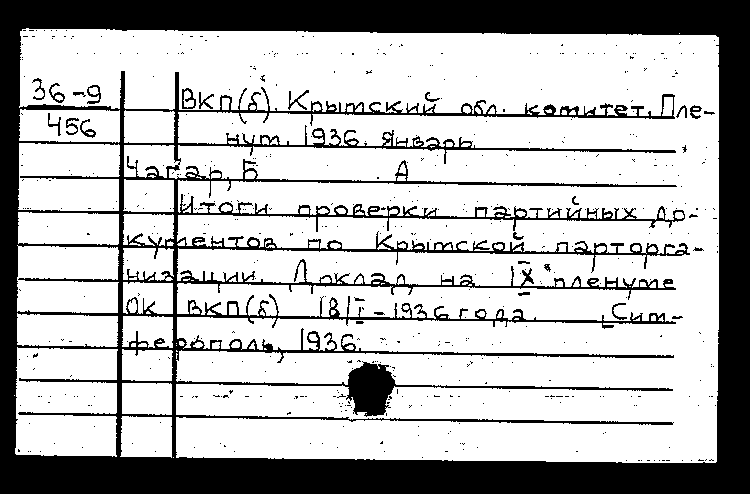 36-9
456
ВКП(б). Крымский обл. комитет. Пле-
нум. 1936. Январь
Чагар, Б А
Итоги проверки партийных до-
кументов по Крымской парторга-
низации. Доклад на IX пленуме
ОК ВКП(б) 18/I-1936 года. [Сим-
ферополь, 1936.